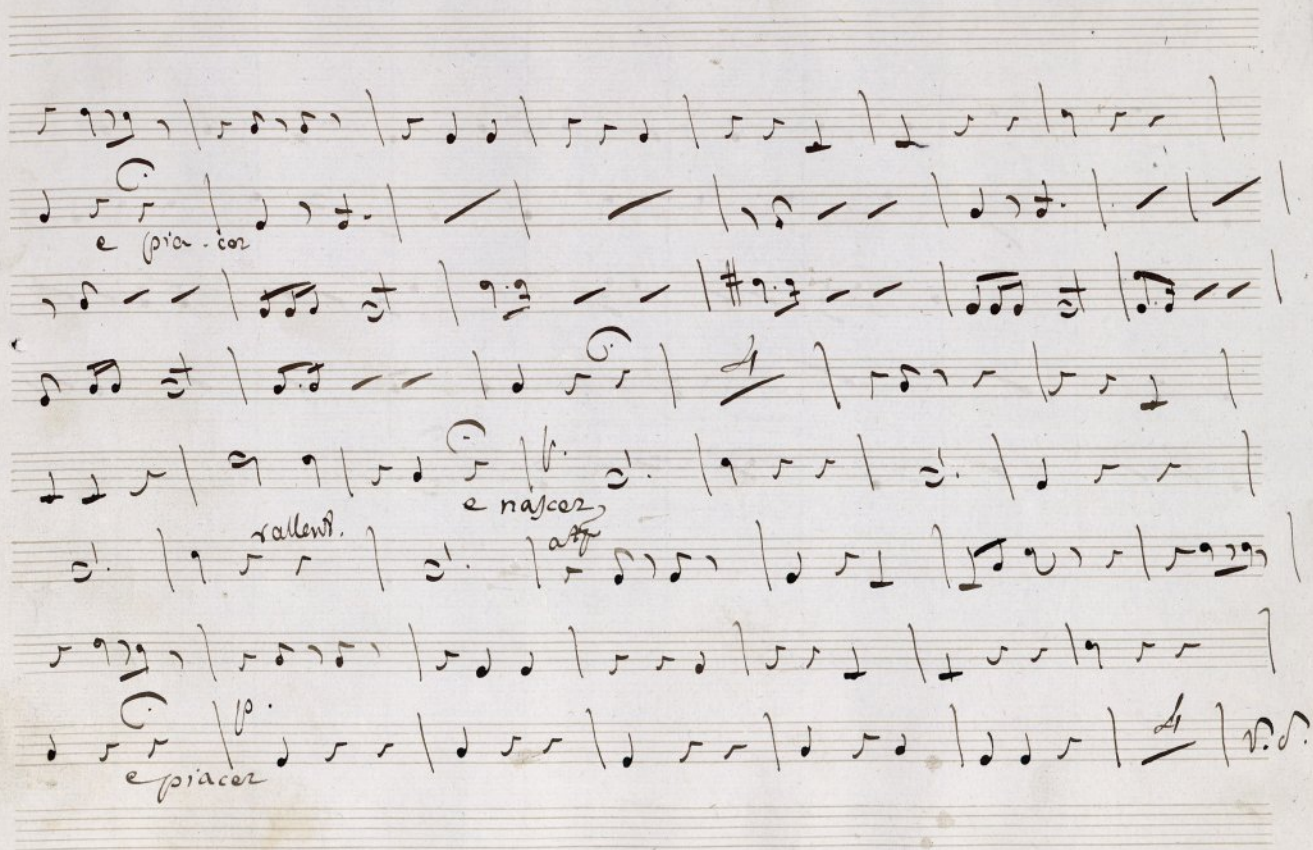 e pia-cer
4
e nascer
rallent.
p.
e piacer
4